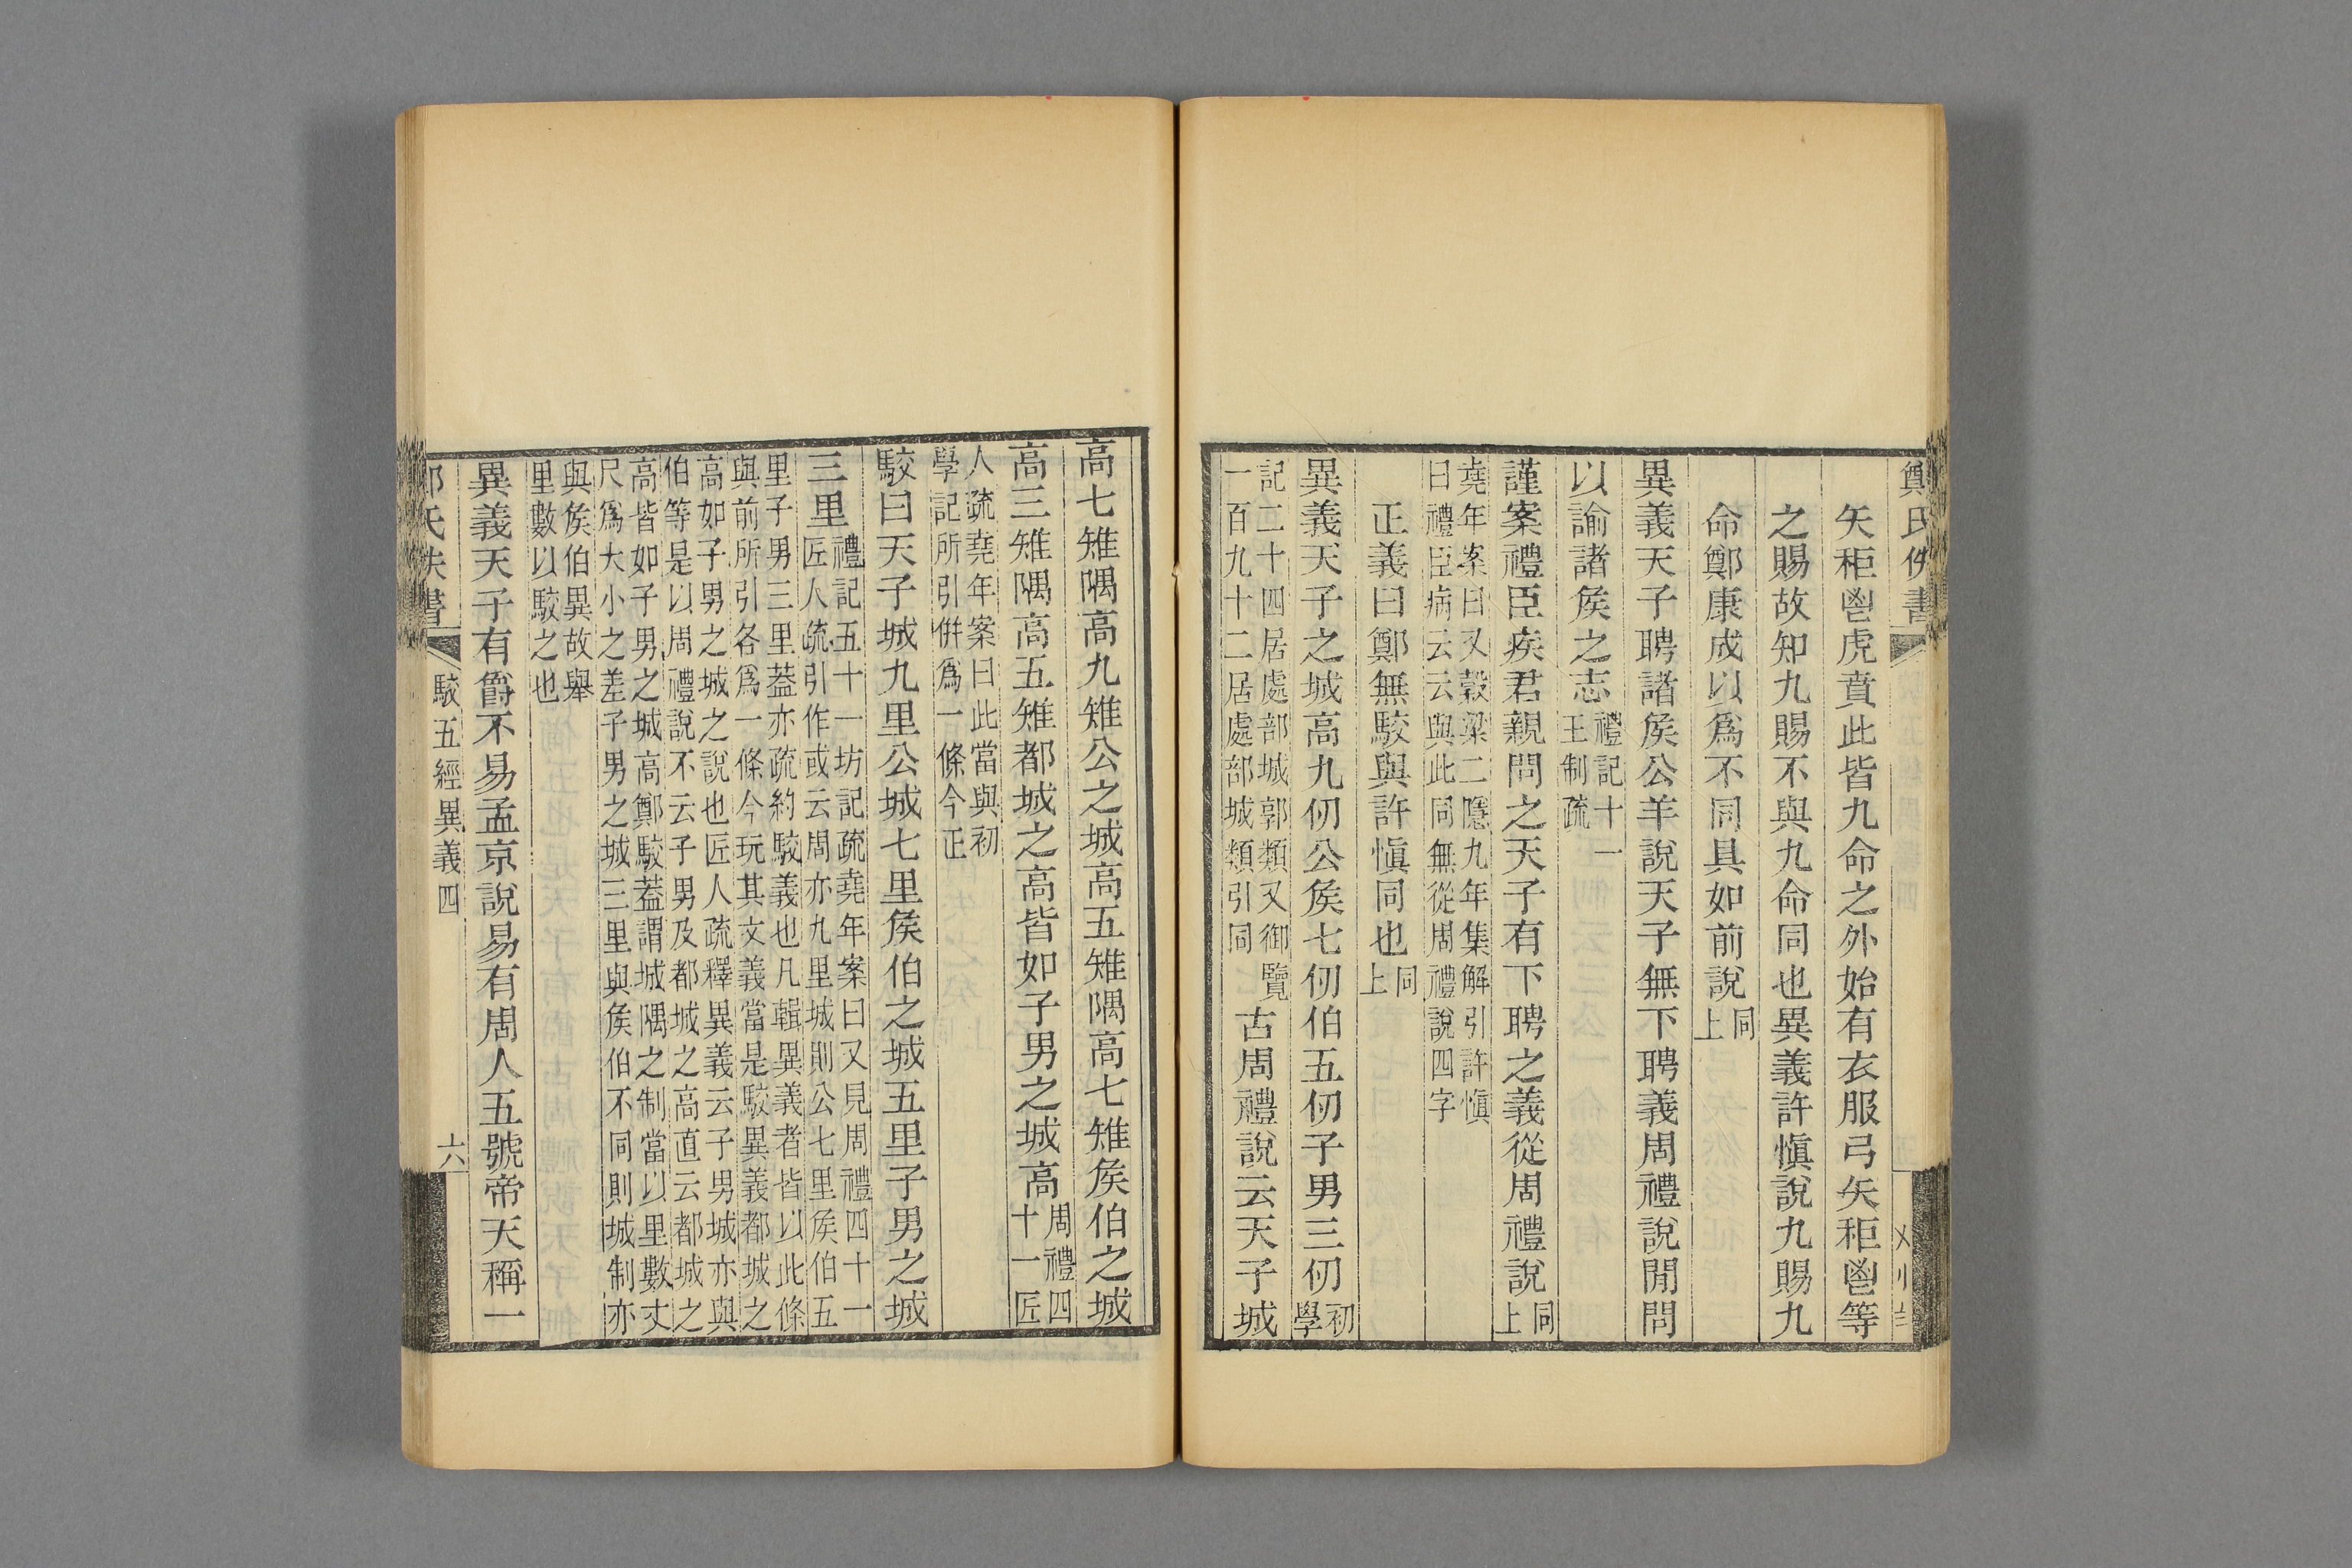 鄭氏佚書
矢秬鬯虎賁此皆九命之外始有衣服弓矢秬鬯等
之賜故知九賜不與九命同也異義許慎說九賜九
命鄭康成以爲不同具如前說同上
異義天子聘諸矦公羊說天子無下聘義周禮說閒問
以諭諸矦之志禮記十一王制疏
謹案禮臣疾君親問之天子有下聘之義從周禮說同上
堯年案曰又穀梁二隱九年集解引許愼
曰禮臣病云云與此同無從周禮說四字
正義曰鄭無駮與許愼同也同上
異義天子之城高九仞公矦七仞伯五仞子男三仞初學
記二十四居處部城郭類又御覽
一百九十二居處部城類引同
古周禮說云天子城
高七雉隅高九雉公之城高五雉隅高七雉矦伯之城
高三雉隅高五雉都城之高皆如子男之城高周禮四十一匠
人疏堯年案曰此當與初
學記所引併爲一條今正
駮曰天子城九里公城七里矦伯之城五里子男之城
三里
禮記五十一坊記疏堯年案曰又見周禮四十一
匠人疏引作或云周亦九里城則公七里矦伯五
里子男三里葢亦疏約駮義也凡輯異義者皆以此條
與前所引各爲一條今玩其文義當是駮異義都城之
高如子男之城之說也匠人疏釋異義云子男城亦與
伯等是以周禮說不云子男及都城之高直云都城之
高皆如子男之城高鄭駮葢謂城隅之制當以里數丈
尺爲大小之差子男之城三里與矦伯不同則城制亦
與矦伯異故舉
里數以駮之也
異義天子有爵不易孟京說易有周人五號帝天稱一
駮五經異義四
六